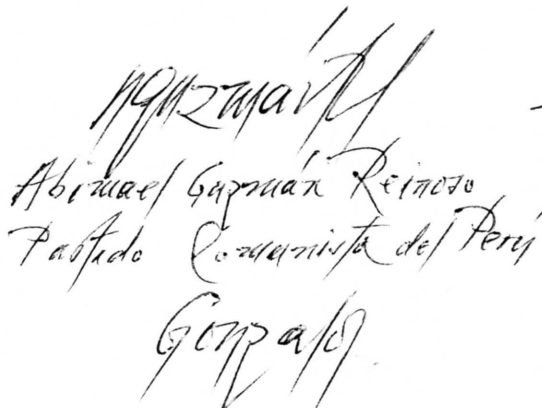 AGuzmánR
Abimael Guzmán Reinoso
Partido Comunista del Perú
Gonzalo